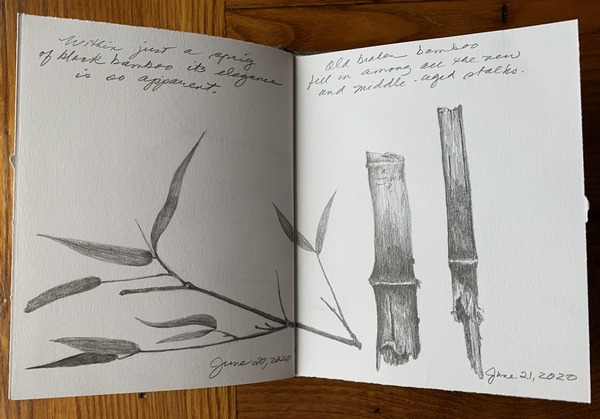 Within just a sprig
of black bamboo its elegance
is so apparent.
June 20, 2020
Old broken bamboo
fill in among all the new
and middle-aged stalks.
June 21, 2020